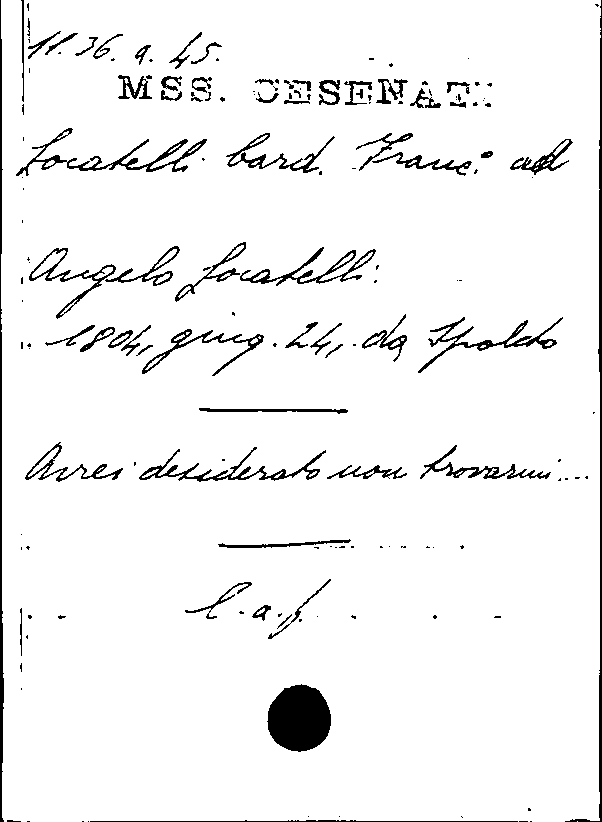 11. 36. a. 45.
MSS. CESENATI
Locatelli card. Franc.° ad
Angelo Locatelli.
1804, giug. 24, da Spoleto
Avrei desiderato non trovarmi....
l. a. f.